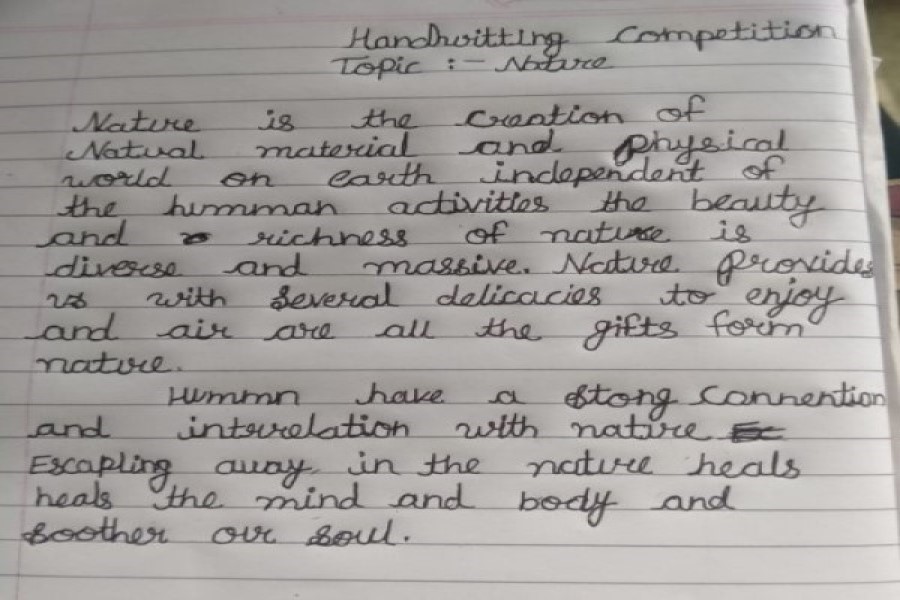 Handwitting Competition
Topic :- Nature
Nature is the creation of
Natual material and physical
world on earth independent of
the humman activities the beauty
and richness of nature is
diverse and massive. Nature provides
us with several delicacies to enjoy
and air are all the gifts form
nature.
Hummn have a stong connention
and interelation with nature
Escapling away in the nature heals
heals the mind and body and
soother our soul.